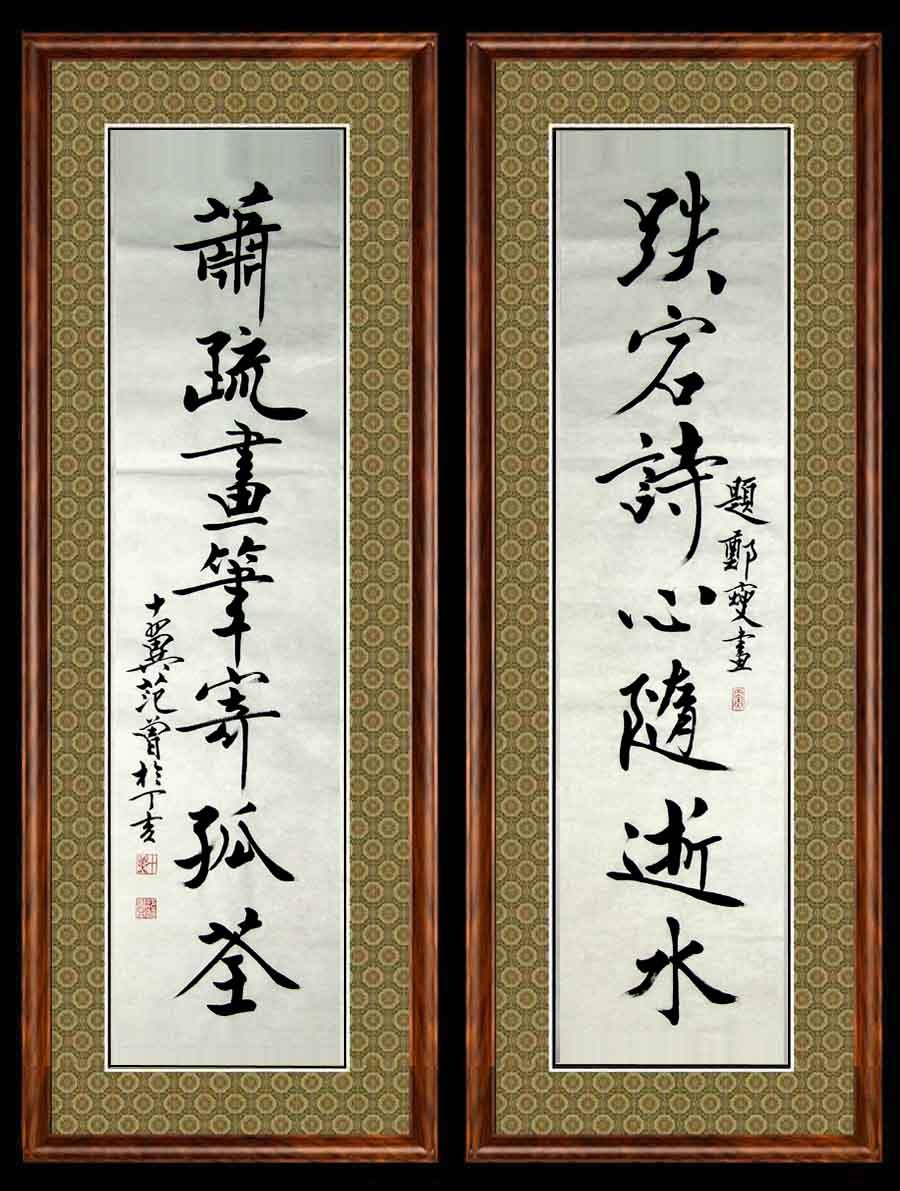 跌宕詩心隨逝水
題鄭燮畫
蕭疏畫筆寄孤荃
十翼范曾於丁亥